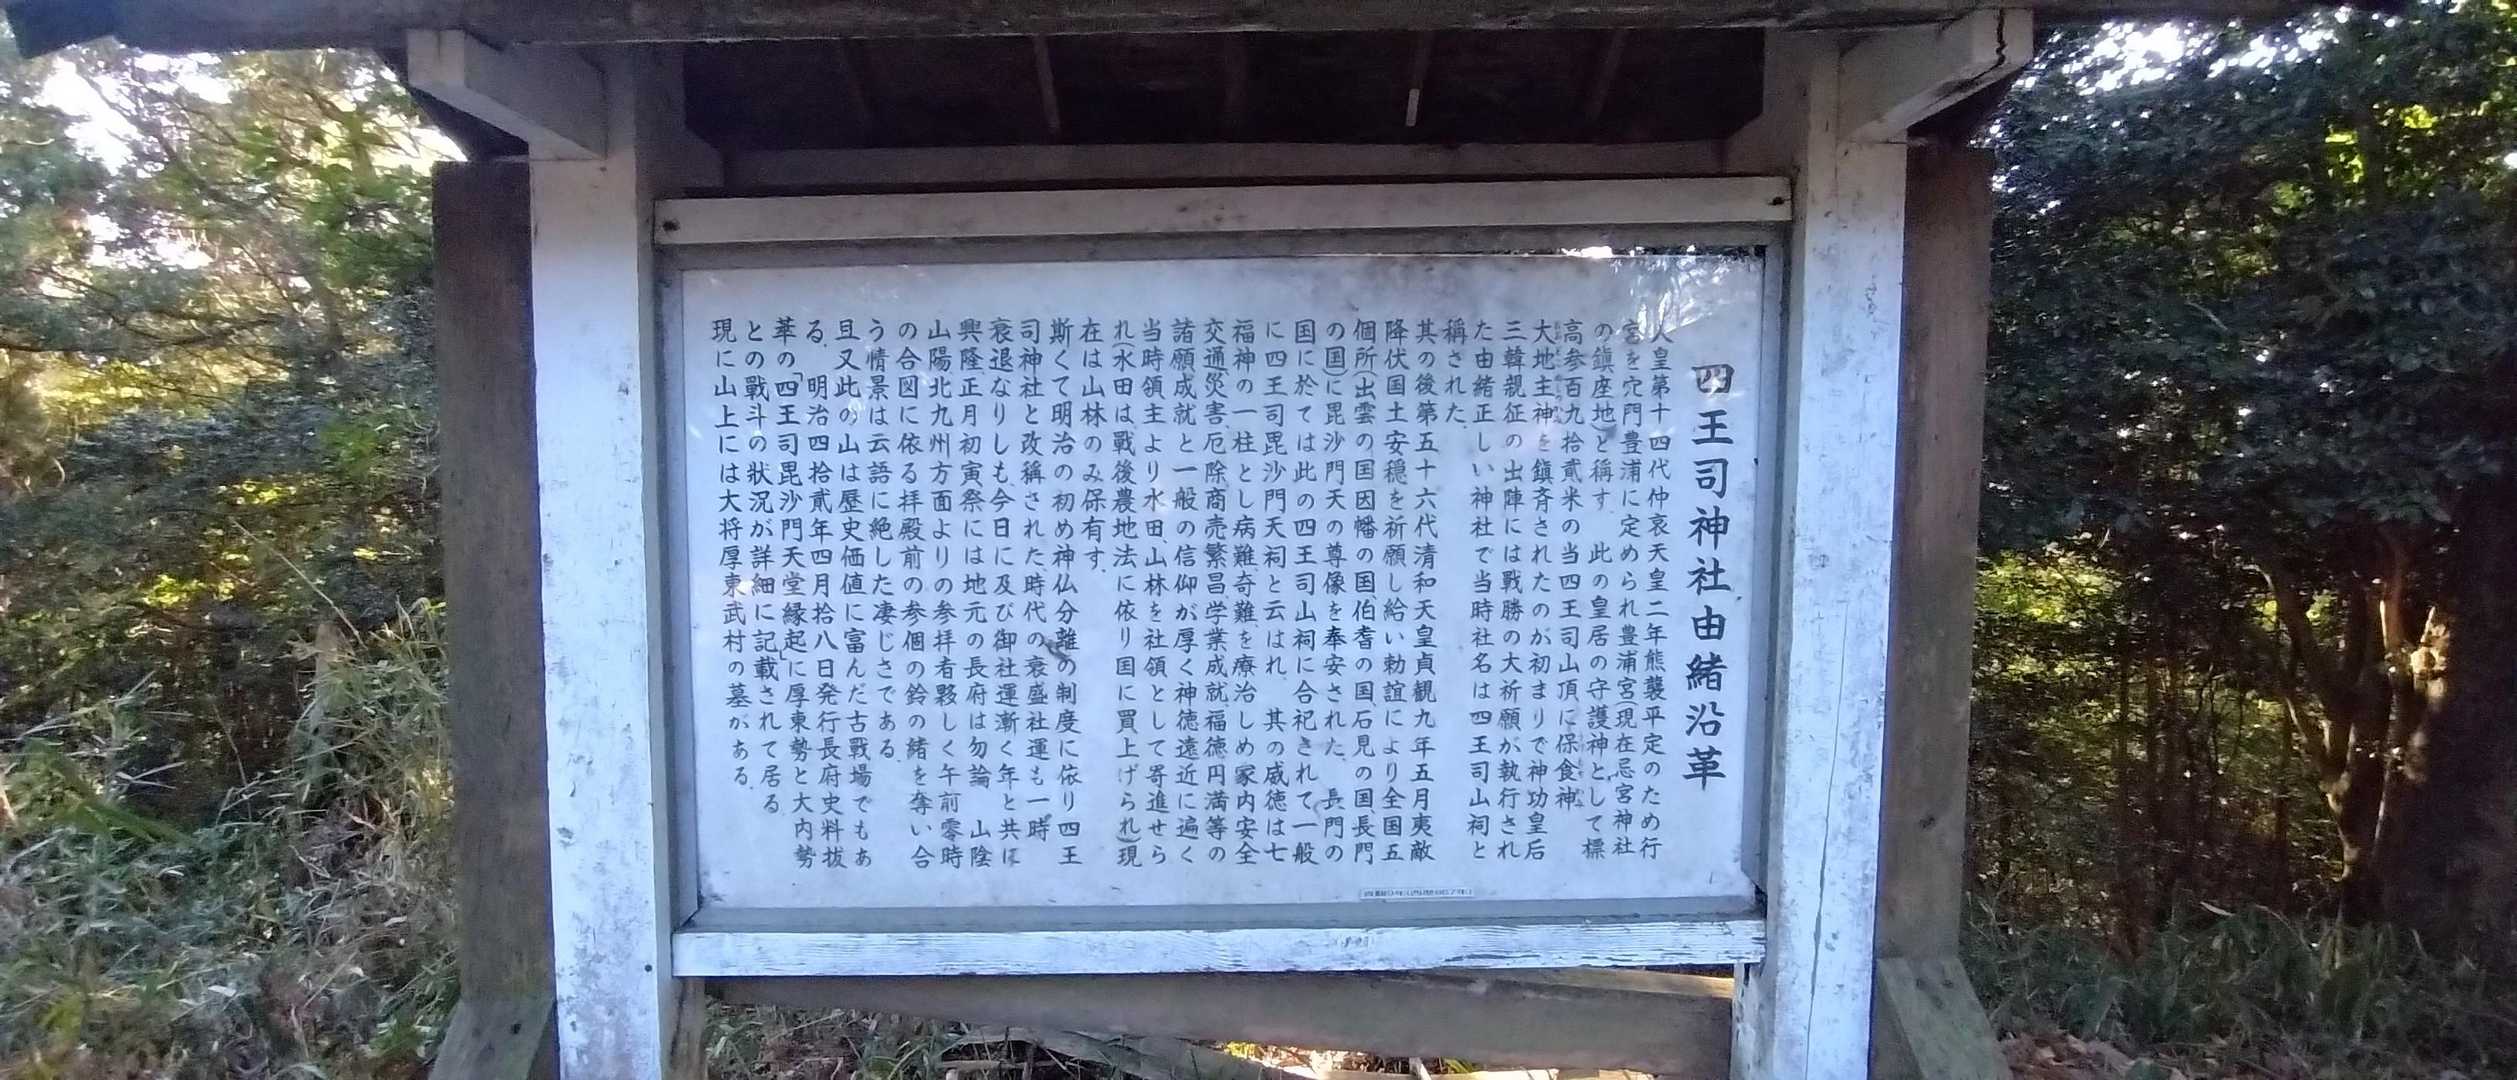 四王司神社由緒沿革
人皇第十四代仲哀天皇二年熊襲平定のため行
宮を穴門豊浦に定められ豊浦宮(現在忌宮神社
の鎮座地)と稱す。此の皇居の守護神として標
高参百九拾貳米の当四王司山頂に保食神
大地主神を鎮斉されたのが初まりで神功皇后
三韓親征の出陣には戦勝の大祈願が執行され
た由緒正しい神社で当時社名は四王司山祠と
稱された。
其の後第五十六代清和天皇貞観九年五月夷敵
降伏国土安穏を祈願し給い勅誼により全国五
個所(出雲の国因幡の国、伯耆の国、石見の国、長門
の国)に毘沙門天の尊像を奉安された。長門の
国に於ては此の四王司山祠に合祀されて一般
に四王司毘沙門天祠と云はれ、其の威徳は七
福神の一柱とし病難奇難を療治しめ家内安全
交通災害、厄除商売繁昌、学業成就、福徳円満等の
諸願成就と一般の信仰が厚く神徳遠近に遍く
当時領主より水田、山林を社領として寄進せら
れ(水田は、戰後農地法に依り国に買上げられ)現
在は山林のみ保有す。
斯くて明治の初め神仏分離の制度に依り四王
司神社と改稱された、時代の衰盛社運も一時
衰退なりしも、今日に及び御社運漸く年と共に
興隆正月初寅祭には地元の長府は勿論 山陰
山陽北九州方面よりの参拝者夥しく午前零時
の合図に依る拝殿前の参個の鈴の緒を奪い合
う情景は云語に絶した凄じさである。
旦又此の山は歴史価値に富んだ古戰場でもあ
る。明治四拾貳年四月拾八日発行長府史料抜
萃の「四王司毘沙門天堂縁起」に厚東勢と大内勢
との戰斗の狀況が詳細に記載されて居る
現に山上には大将厚東武村の墓がある。